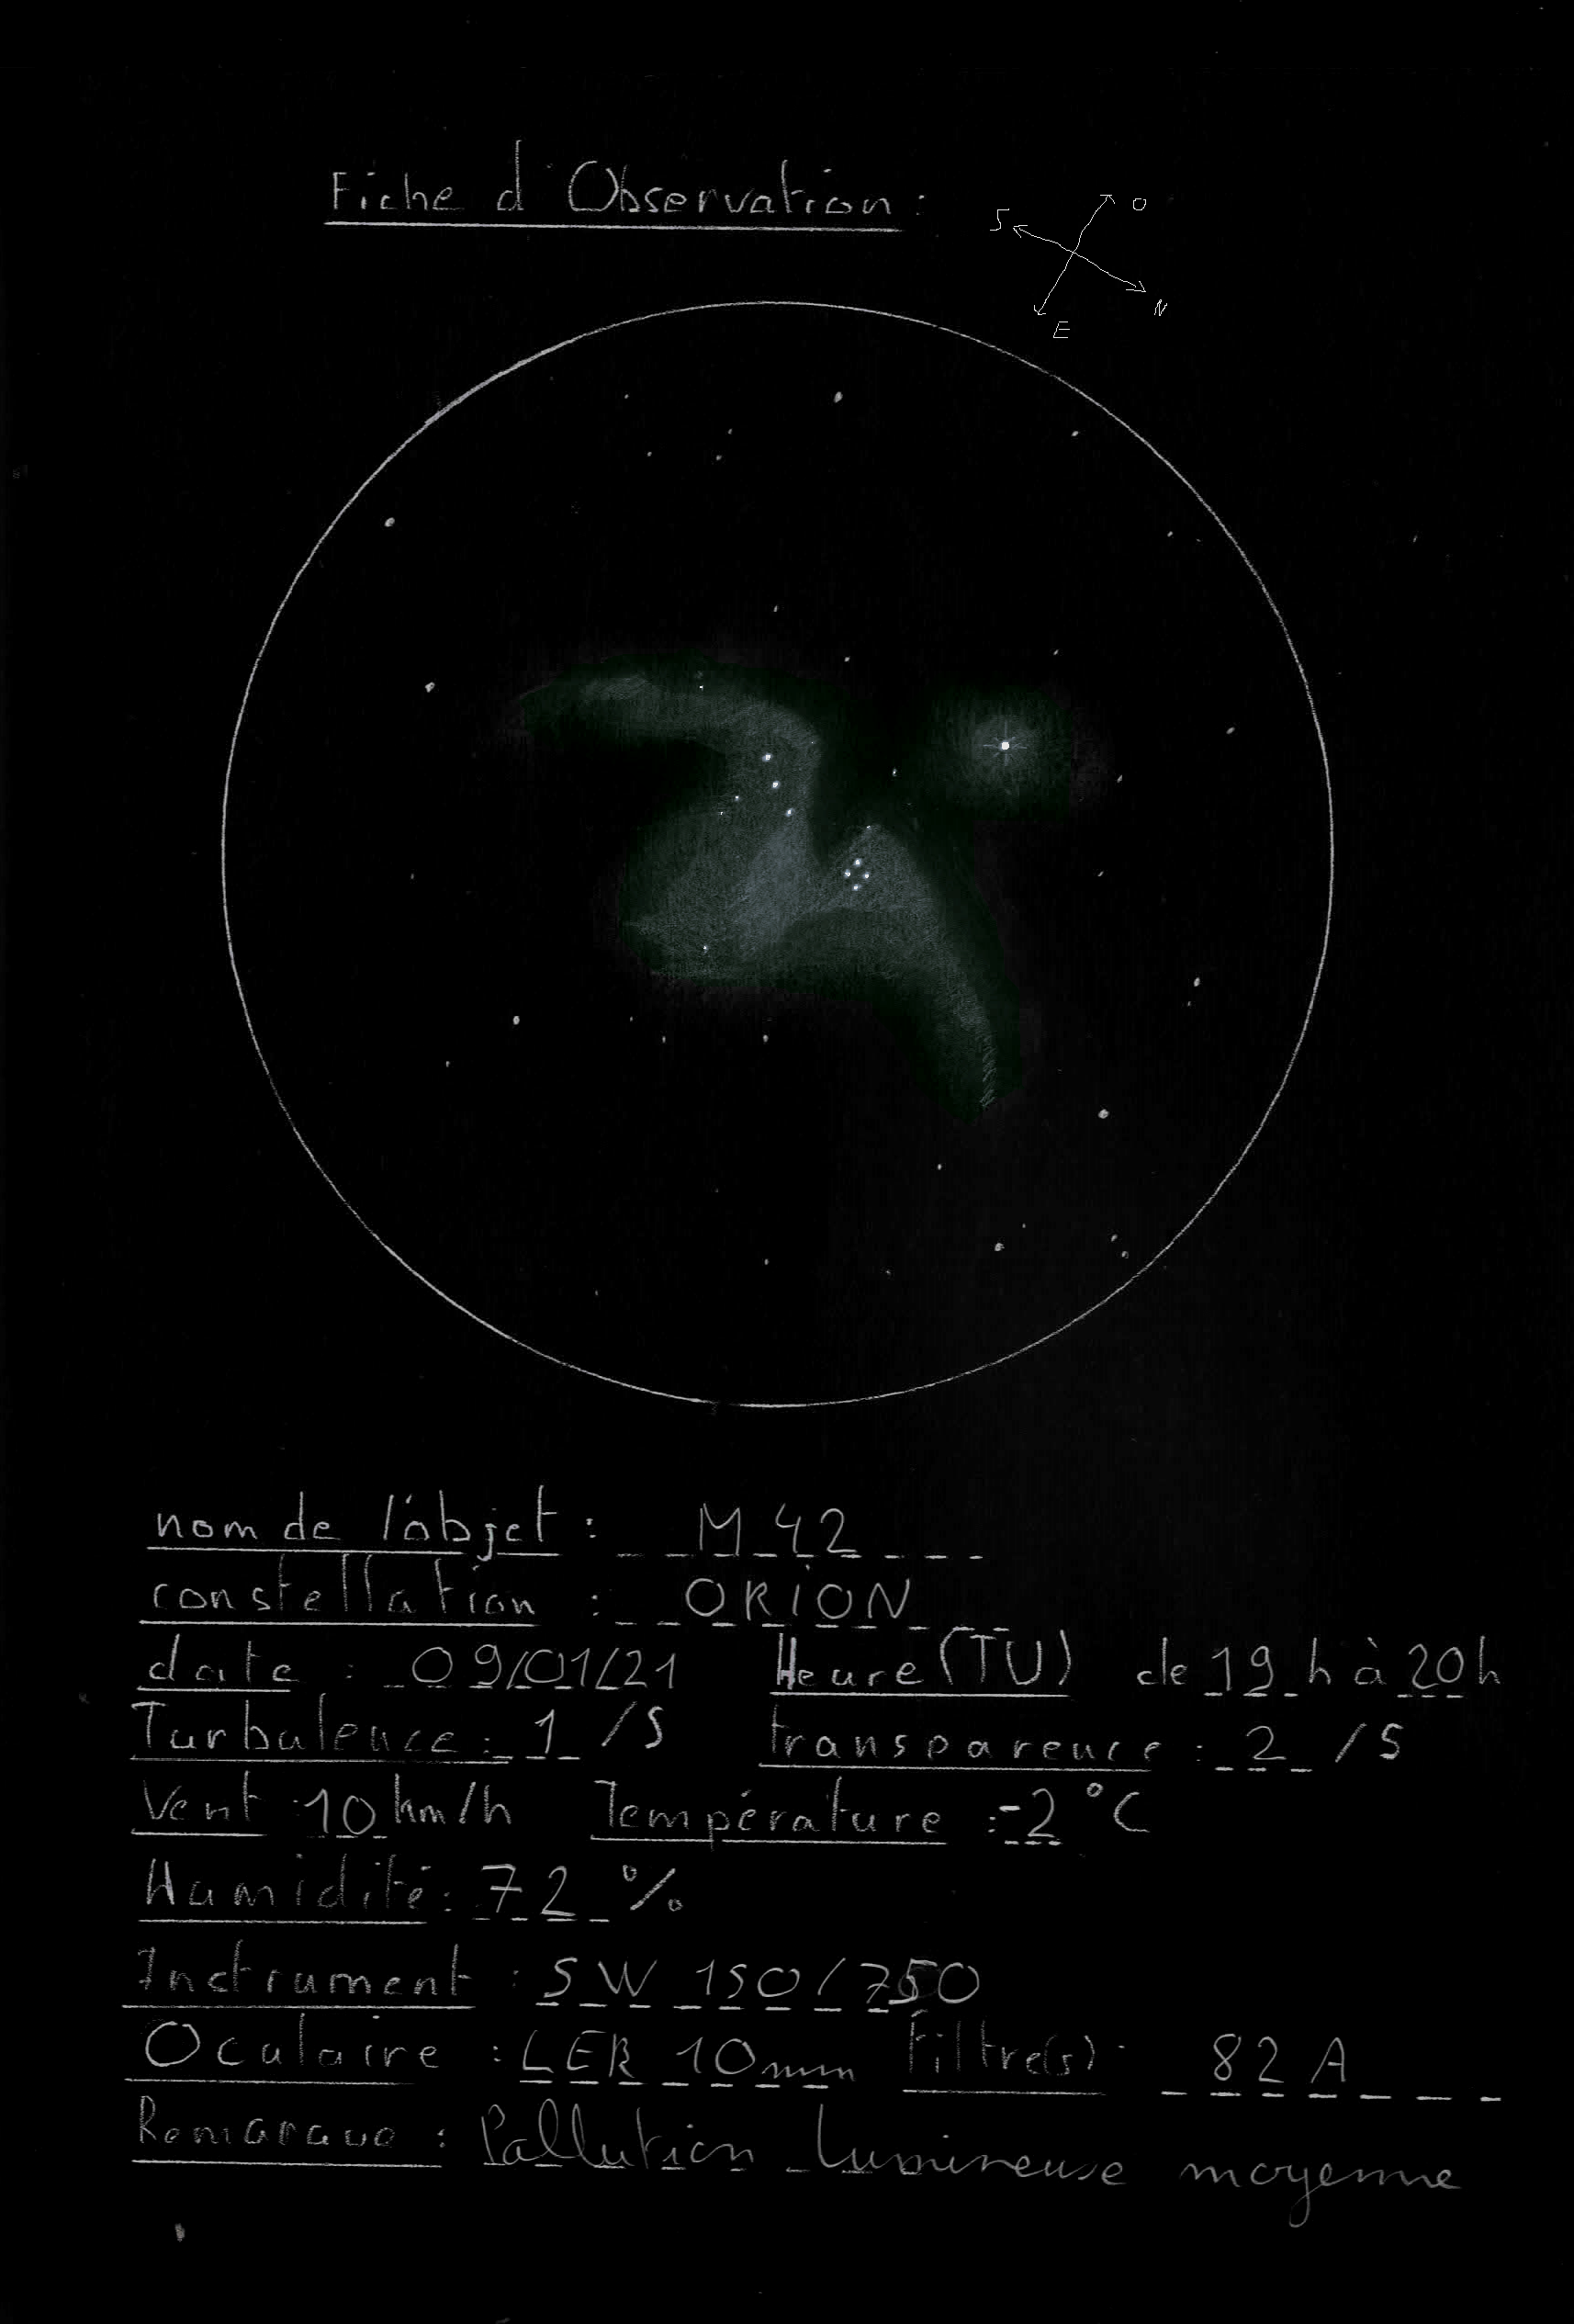 Fiche d'Observation :
O
S
N
E
nom de l'objet : M 42
constellation : ORION
date : 09/01/21 Heure (TU) de 19 h à 20 h
Turbulence : 1 /5 transparence : 2 /5
Vent : 10 km/h Température : -2 °C
Humidité : 72 %
Instrument : SW 150/750
Oculaire : LER 10mm Filtre(s) : 82 A
Remarque : Pollution lumineuse moyenne